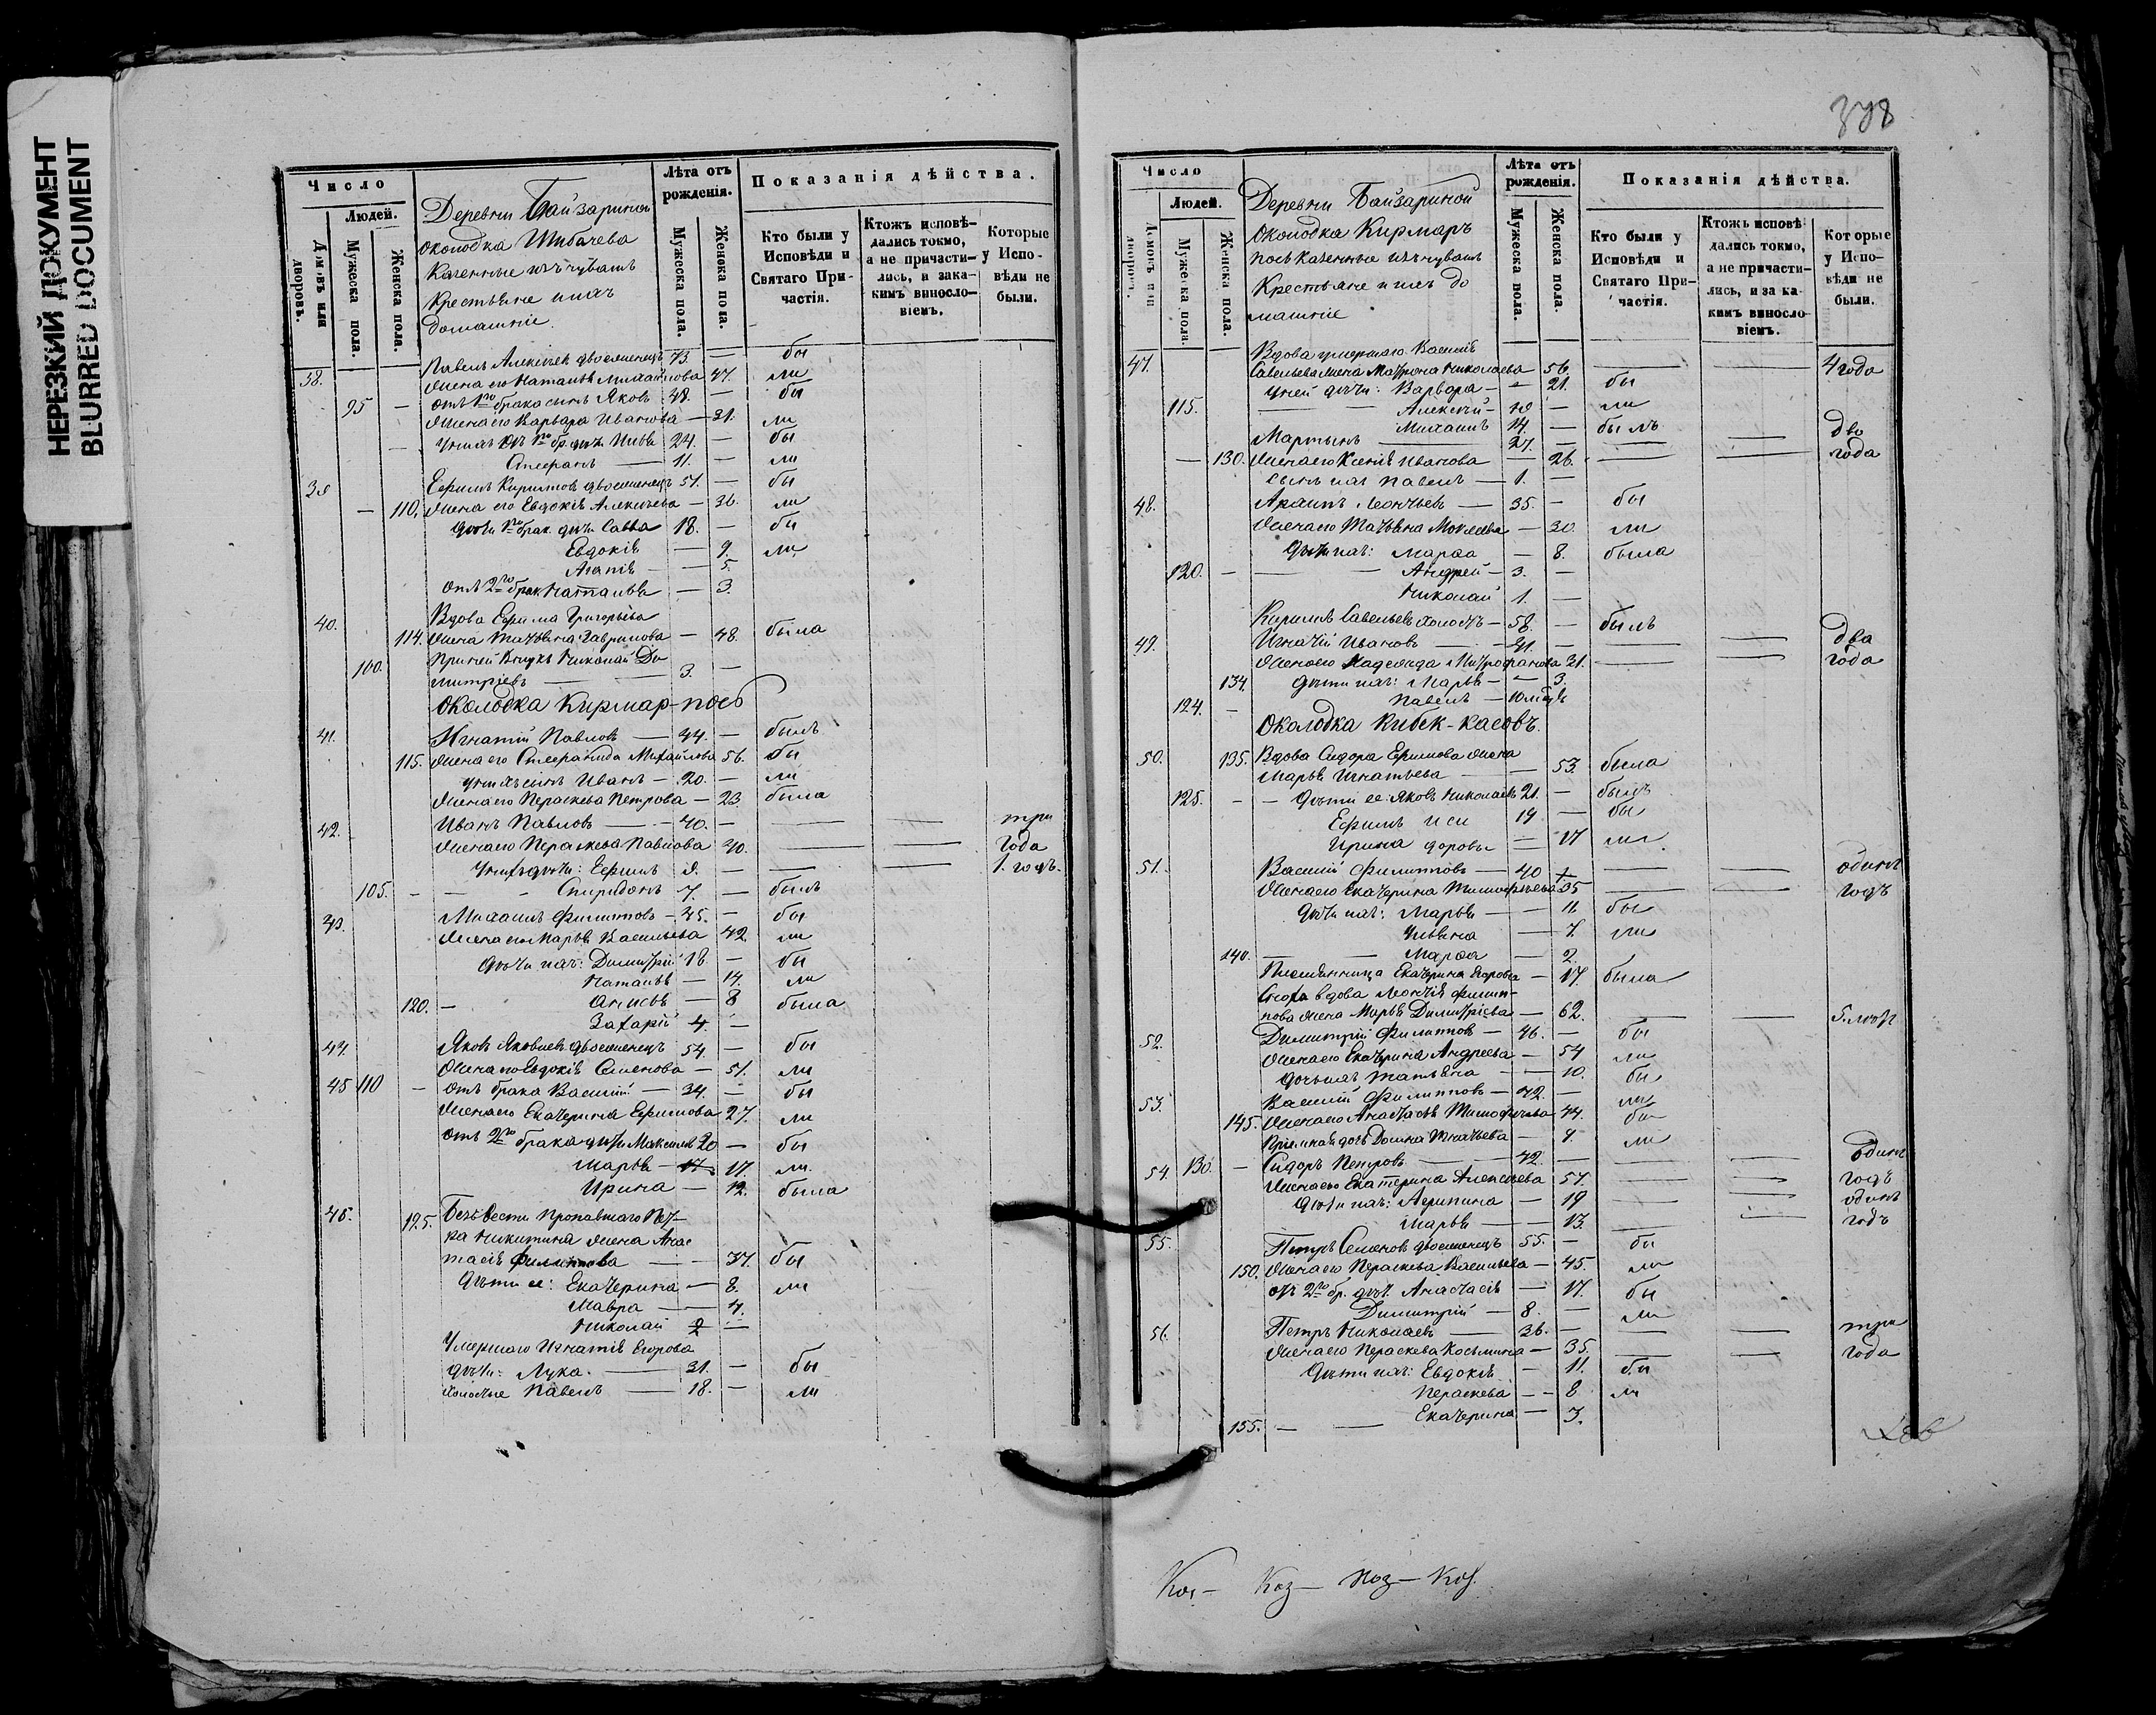 НЕРЕЗКИЙ ДОКУМЕНТ
BLURRED DOCUMENT
Число
Людей.
Домовъ или дворовъ.
Мужеска пола.
Женска пола.
Деревни Байзариной
околодка Шибачева
Казенные изъ чувашъ
Крестьяне и ихъ
домашніе.
Лѣта отъ рожденія.
Мужеска пола.
Женска пола.
Показанія дѣйства.
Кто были у Исповѣди и Святаго Причастія.
Ктожъ исповѣдались токмо, а не причастились, и закакимъ винословіемъ.
Которые у Исповѣди не были.
38. Павелъ Алексѣевъ двоеженецъ 73. — бы
Жена его Наталья Михайлова 47. ли
95 — отъ 1го брака сынъ Яковъ 48. — бы
Жена его Варвара Иванова — 31. ли
У нихъ отъ 1го бр. дѣти 24. — бы
11. — ли
39 Ефимъ Кириловъ двоеженецъ 51. — бы
— 110. Жена его Евдокія Алексѣева — 30. ли
дѣти 1го брак. дѣти Савва 18. — бы
Евдокія — 9. ли
Агапія — 5.
отъ 2го брак Наталья — 3.
40. Вдова Ефима Григорьева
114. Жена Татьяна Гаврилова — 48. была
100. При ней внукъ Николай Ди
митріевъ — 3. —
Околодка Кирмар-посъ
41. Игнатій Павловъ — 44. — былъ
115. Жена его Михайлова 56. бы
У нихъ сынъ Иванъ — 20. — ли
Жена его Параскева Петрова — 23. была
42. Иванъ Павловъ — 40. — — — три
Жена его Параскева Павлова 40. — — года
У нихъ дѣти: Ефимъ 9. — — — 1. годъ.
105. — — Спиридонъ 7. — былъ
43. Михаилъ Филиповъ — 45. — бы
Жена его Марья Васильева 42. ли
Дѣти ихъ: Димитрій 18 — бы
Наталья — 14. ли
120. — Анисья — 8 была
Захарій 4. —
44. Яковъ Яковлевъ двоеженецъ 54. — бы
Жена его Евдокія Семенова — 51. ли
45 110 — отъ брака Василій — 34. — бы
Жена его Екатерина Ефимова 27. ли
отъ 2го брака дѣти Максимъ 20 — бы
Марья — 17. ли.
Ирина — 12. была
46. 125. Безъ вести пропавшаго
ка Никитина жена Анас
тасія Филиппова — 37. бы
Дѣти ее: Екатерина — 8. ли
Мавра — 4.
Николай 2 —
Умершаго Игнатія Егорова
дѣти: Лука. — 21. — бы
холостые Павелъ — 18. — ли
378
Число
Людей.
Домовъ или дворовъ.
Мужеска пола.
Женска пола.
Деревни Байзариной
околодка Кирмаръ
посъ казенные изъ чувашъ
Крестьяне и ихъ до
машніе
Лѣта отъ рожденія.
Мужеска пола.
Женска пола.
Показанія дѣйства.
Кто были у Исповѣди и Святаго Причастія.
Ктожъ исповѣдались токмо, а не причастились, и за какимъ винословіемъ.
Которые у Исповѣди не были.
47. Вдова умершаго Василія
Савельева жена Матрона Николаева 56. — — 4 года
У ней дѣти: Варвара — 21. бы
115. — — Алексѣй — 19 — ли
Михаилъ 14. — былъ
Мартынъ — 27. — — — два
— 130. Жена его Ксенія Иванова — 26. — — года
Сынъ ихъ Павелъ — 1. —
48. Архипъ Леонтьевъ — 35. — бы
Жена его Татьяна Моисеева — 30. ли
Дѣти ихъ: Марѳа — 8. была
120. — — Андрей — 3. —
Николай 1. —
Кирилъ Савельевъ холостъ — 58. — былъ
49. Игнатій Ивановъ — 31. — — — два
Жена его Надежда Митрофанова 31. — — года
134. дѣти ихъ: Марья — 3.
124. — Павелъ — 10 мѣсяц
Околодка Кибек-касовъ.
50. 135. Вдова Сидора Ефимова жена
Марья Игнатьева — 53. была
125. — — Дѣти ее: Яковъ Николаевъ 21. — былъ
Ефимъ и си 19 — бы
Ирина доровы — 17 ли.
51. Василій Филипповъ — 40 — — — одинъ
Жена его Екатерина Тимофѣева 35 — — годъ
Дѣти ихъ: Марья — 11 бы
Ульяна — 7. ли
140. — — Марѳа — 2.
Племянница Екатерина Егорова — 17. была
Сноха вдова Леонтія Филип-
пова жена Марья Димитріева — 62. — — 5. лѣтъ
52. Димитрій Филипповъ — 46. — бы
Жена его Екатерина Андреева — 54 ли
Дочь ихъ Татьяна — 10. бы
53. Василій Филипповъ — 42. — ли
145. Жена его Анастасія Тимофѣева 44. бы
Пріемная дочь Домна Игнатьева — 9. ли
54. 130. — Сидоръ Петровъ — 42. — — — одинъ
Жена его Екатерина Алексѣева 57. — — годъ
Дѣти ихъ: Агрипина — 19 — — одинъ
Марья — 13. — — годъ
55. Петръ Семеновъ двоеженецъ 55. — бы
150. Жена его Параскева Васильева — 45. ли
отъ 2го бр. дѣт. Анастасія — 17. бы
Димитрій — 8. — ли
56. Петръ Николаевъ — 36. — — — три
Жена его Параскева Косьмина — 35. — — года
Дѣти ихъ: Евдокія — 11. бы
Параскева — 8 ли
155. — — Екатерина — 3.